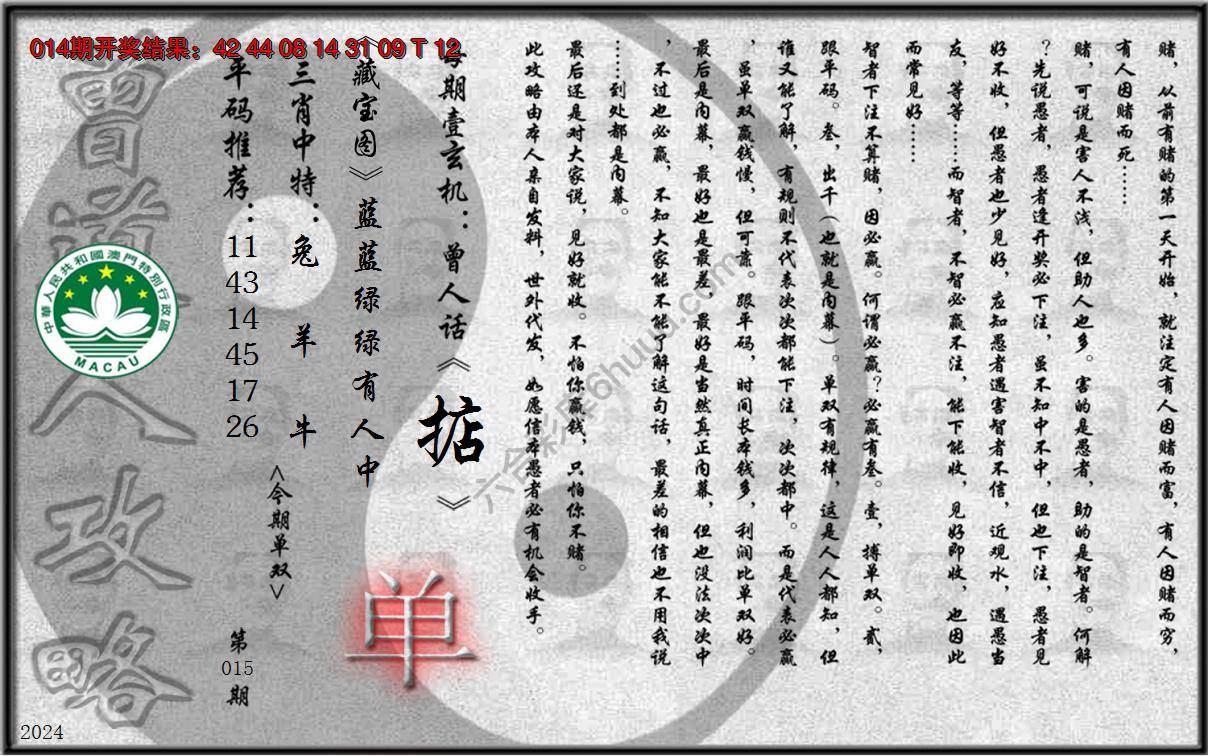 014期开奖结果：42 44 08 14 31 09 T 12
赌，从前有赌的第一天开始，就注定有人因赌而富，有人因赌而穷，
有人因赌而死……
赌，可说是害人不浅，但助人也多。害的是愚者，助的是智者。何解
？先说愚者，愚者逢开奖必下注，虽不知中不中，但也下注，愚者见
好不收，但愚者也少见好，应知愚者遇害智者不信，近观水，遇愚当
友，等等……而智者，不智必赢不注，能下能收，见好即收，也因此
而常见好……
智者下注不算赌，因必赢。何谓必赢？必赢有叁。壹，搏单双。贰，
跟平码。叁，出千（也就是内幕）。单双有规律，这是人人都知，但
谁又能了解，有规则不代表次次都能下注，次次都中。而是代表必赢
，虽单双赢钱慢，但可靠。跟平码，时间长本钱多，利润比单双好。
最后是内幕，最好也是最差，最好是当然真正内幕，但也没法次次中
，不过也必赢，不知大家能不能了解这句话，最差的相信也不用我说
……到处都是内幕。
最后还是对大家说，见好就收。不怕你赢钱，只怕你不赌。
此攻略由本人亲自发料，世外代发，如愿信本愚者必有机会收手。
每期壹玄机：曾人话《掂》
《藏宝图》蓝蓝绿绿有人中
单
三肖中特：兔 羊 牛
<今期单双>
平码推荐：11 43 14 45 17 26
第015期
曾道人攻略
中華人民共和國澳門特別行政區
MACAU
2024